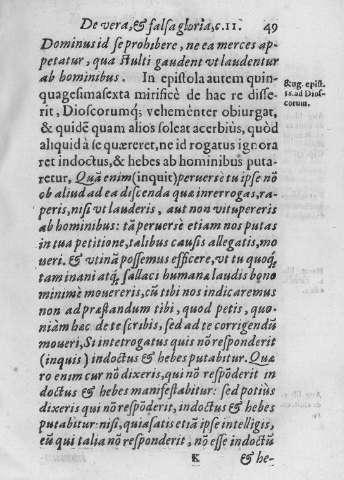 De vera, & falsa gloria, c.11. 49
Dominus id se prohibere, ne ea merces ap-
petatur, qua stulti gaudent vt laudentur
ab hominibus. In epistola autem quin-
quagesimasexta mirificè de hac re disse-
rit, Dioscorumq; vehementer obiurgat,
& quidē quam alios soleat acerbiùs, quòd
aliquid à se quæreret, ne id rogatus ignora
ret indoctus, & hebes ab hominibus puta-
retur, Quā enim (inquit) peruersè tu ipse nō
ob aliud ad ea discenda quæ interrogas, ra-
peris, nisi vt lauderis, aut non vitupereris
ab hominibus: tā peruersè etiam nos putas
in tua petitione, talibus causis allegatis, mo
ueri. & vtinā possemus efficere, vt tu quoq;
tam inani atq; fallaci humanæ laudis bono
minimè mouereris, cū tibi nos indicaremus
non ad præstandum tibi, quod petis, quo-
niam hæc de te scribis, sed ad te corrigendū
moueri, Si intetrogatus quis nō responderit
(inquis) indoctus & hebes putabitur. Quæ
ro enim cur nō dixeris, qui nō respōderit in
doctus & hebes manifestabitur: sed potiùs
dixeris qui nō respōderit, indoctus & hebes
putabitur: nisi, quia satis etiā ipse intelligis,
eū qui talia nō responderit, nō esse indoctū
K & he-
Aug. epist.
56. ad Dios-
corum.